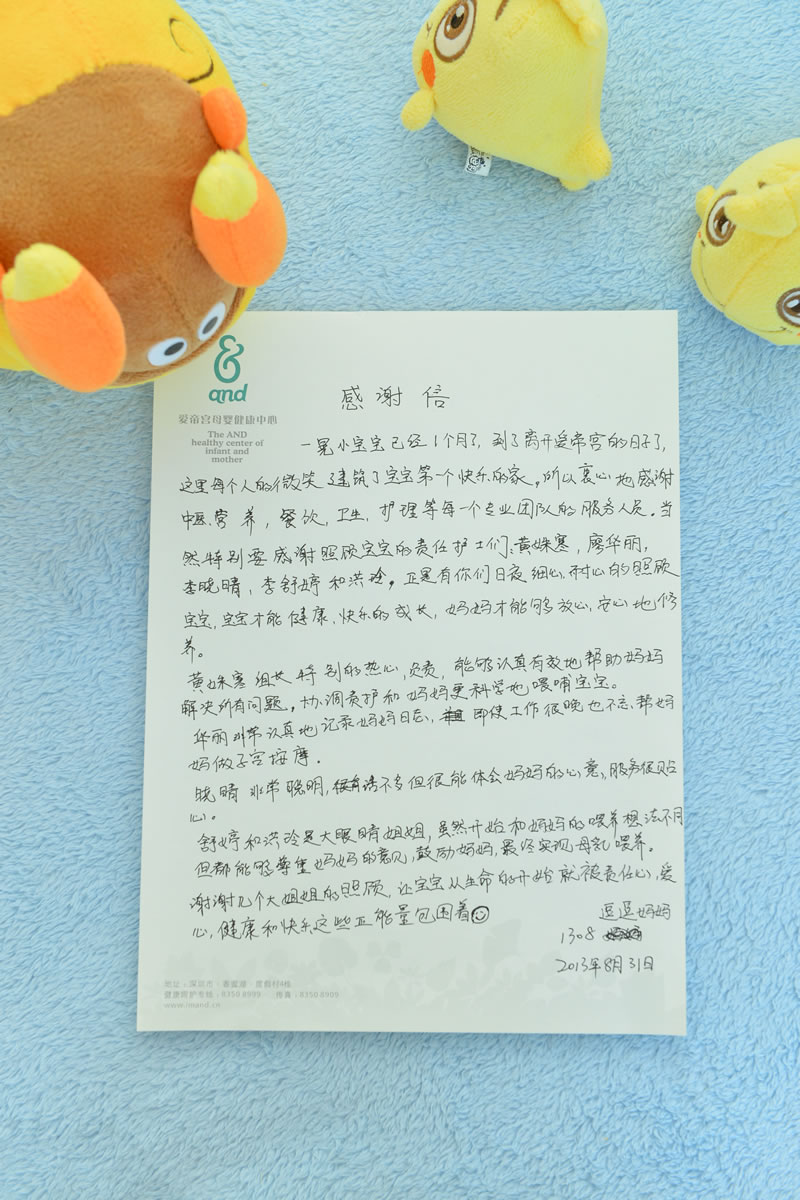 & and
爱帝宫母婴健康中心
The AND
healthy center of
infant and
mother
感谢信
一晃小宝宝已经1个月了,到了离开爱帝宫的日子了,
这里每个人的微笑建筑了宝宝第一个快乐的家。所以衷心地感谢
中医,营养,餐饮,卫生,护理等每一个专业团队的服务人员。当
然特别要感谢照顾宝宝的责任护士们:黄姝寒,廖华丽,
李晓晴,李舒婷和洪玲。正是有你们日夜细心,耐心的照顾
宝宝,宝宝才能健康,快乐的成长,妈妈才能够放心,安心地修
养。
黄姝寒组长特别的热心,负责,能够认真有效地帮助妈妈
解决所有问题。协调责护和妈妈更科学地喂哺宝宝。
华丽非常认真地记录妈妈日志,即使工作很晚也不忘帮妈
妈做子宫按摩.
晓晴非常聪明,话不多但很能体会妈妈的心意,服务很贴
心。
舒婷和洪玲是大眼睛姐姐,虽然开始和妈妈的喂养想法不同
但都能够尊重妈妈的意见,鼓励妈妈,最终实现母乳喂养。
谢谢几个大姐姐的照顾,让宝宝从生命的开始就被责任心,爱
心,健康和快乐这些正能量包围着
豆豆妈妈
1308
2013年8月31日
地址:深圳市·香蜜湖·度假村4栋
健康呵护专线:8350 8999 传真:8350 8909
www.imand.cn